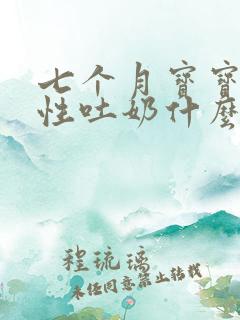 七个月宝宝
性吐奶什麽
程琉璃
未经同意禁止转载